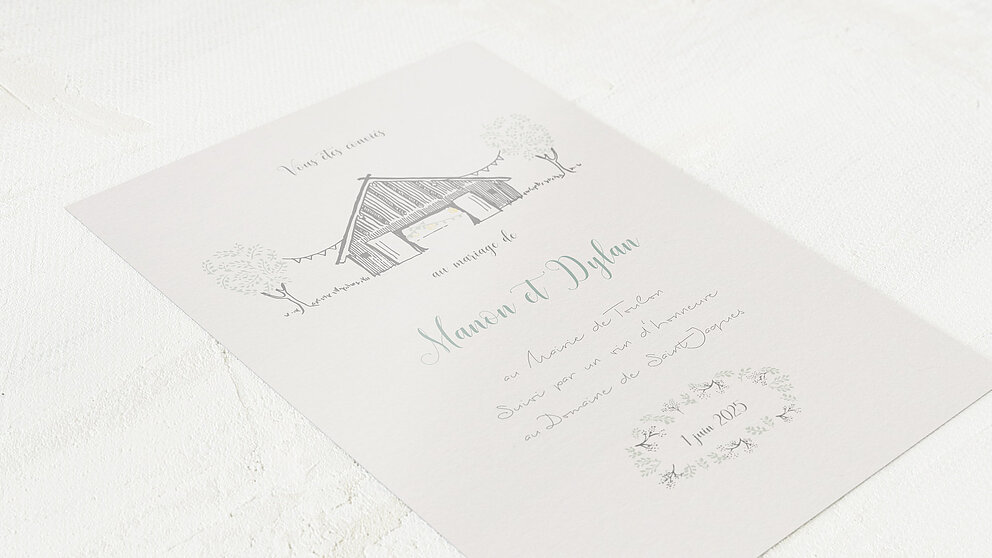 Vous êtes conviés
au mariage de
Manon et Dylan
au Mairie de Toulon
Suivi par un vin d'honneure
au Domaine de Saint Jaques
1 juin 2025